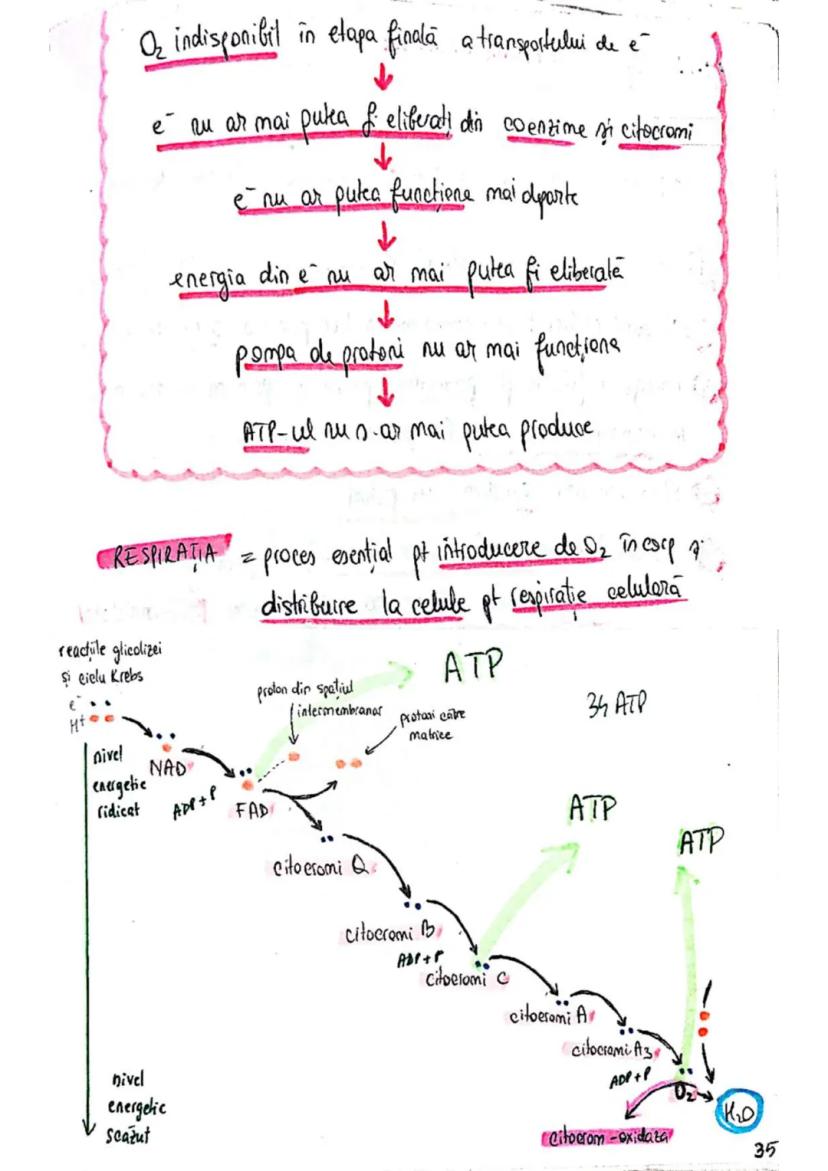 O₂ indisponibil în etapa finală a transportului de e⁻
e⁻ nu ar mai putea fi eliberați din coenzime și citocromi
e⁻ nu ar putea funcționa mai dparte
energia din e⁻ nu ar mai putea fi eliberată
pompa de protoni nu ar mai funcționa
ATP-ul nu s-ar mai putea produce
RESPIRAȚIA = proces esențial pt introducere de O₂ în corp și
distribuire la celule pt respirație celulară
reacțiile glicolizei
și ciclu Krebs
e⁻
H⁺
nivel
energetic
ridicat
NAD
ADP+P
FAD
proton din spațiul
intermembranar
protoni către
matrice
ATP
34 ATP
citocromi Q
citocromi B
ADP+P
citocromi C
ATP
ATP
citocromi A
citocromi A3
ADP+P
O₂
H₂O
citocrom-oxidaza
nivel
energetic
scăzut
35